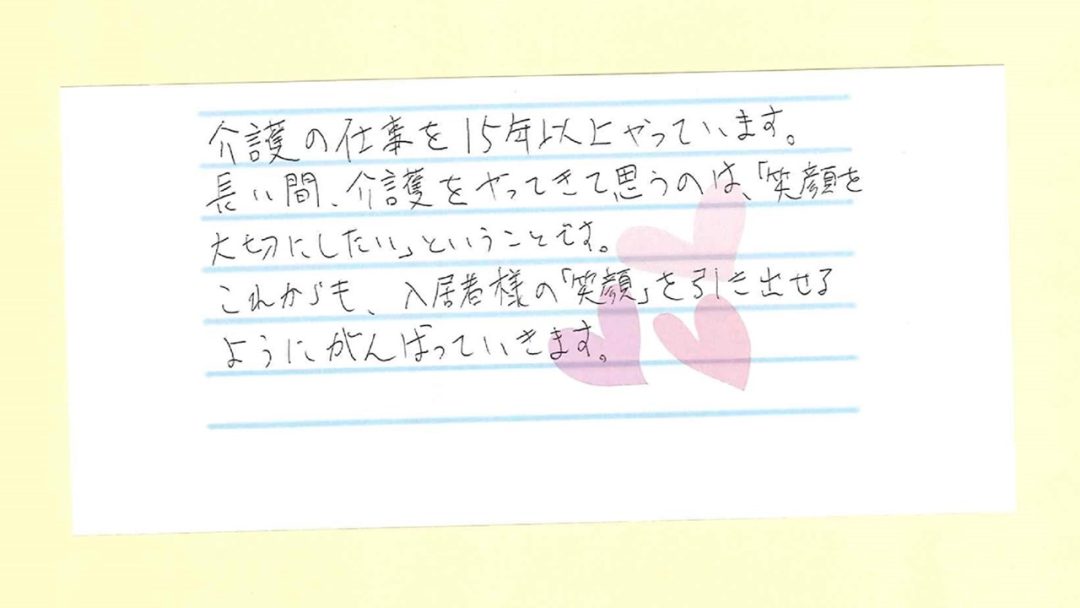 介護の仕事を15年以上やっています。
長い間、介護をやってきて思うのは、「笑顔を
大切にしたい」ということです。
これからも、入居者様の「笑顔」を引き出せる
ようにがんばっていきます。